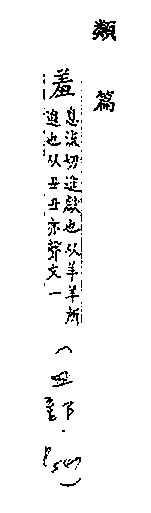 類篇
羞
息流切進獻也从羊羊所
進也从丑丑亦聲文一
(丑部.